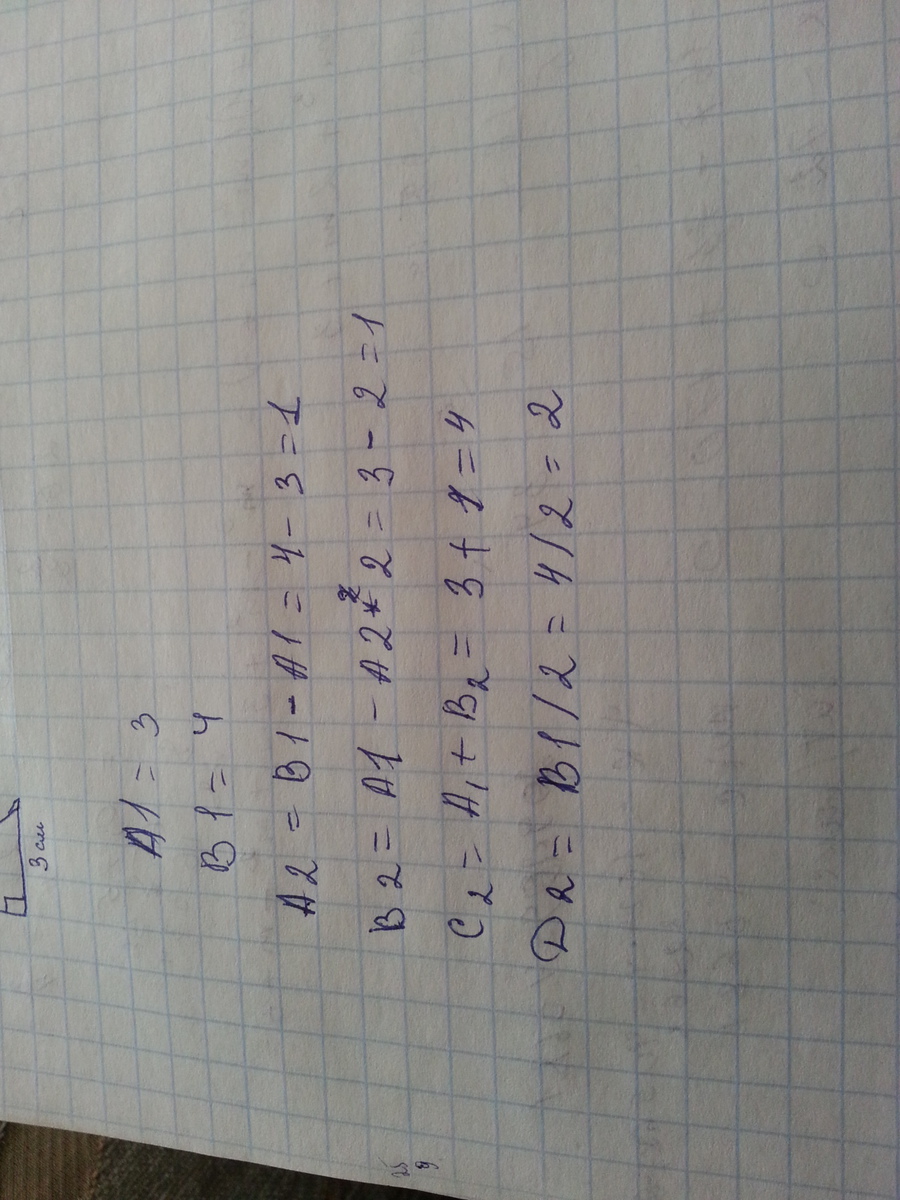 3 см
A1 = 3
B1 = 4
A2 = B1 - A1 = 4 - 3 = 1
B2 = A1 - A2 * 2 = 3 - 2 = 1
C2 = A1 + B2 = 3 + 1 = 4
D2 = B1 / 2 = 4 / 2 = 2